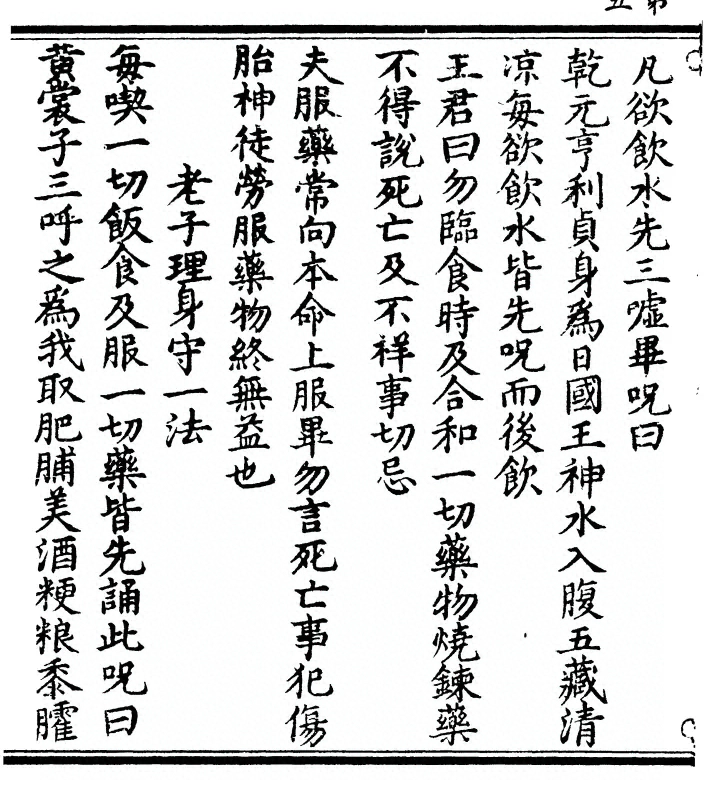 凡欲飲水先三噓畢呪曰
乾元亨利貞身爲日國王神水入腹五藏清
凉每欲飲水皆先呪而後飲
王君曰勿臨食時及合和一切藥物燒鍊藥
不得說死亡及不祥事切忌
夫服藥常向本命上服畢勿言死亡事犯傷
胎神徒勞服藥物終無益也
老子理身守一法
每喫一切飯食及服一切藥皆先誦此呪曰
黃裳子三呼之爲我取肥脯美酒粳粮黍臛